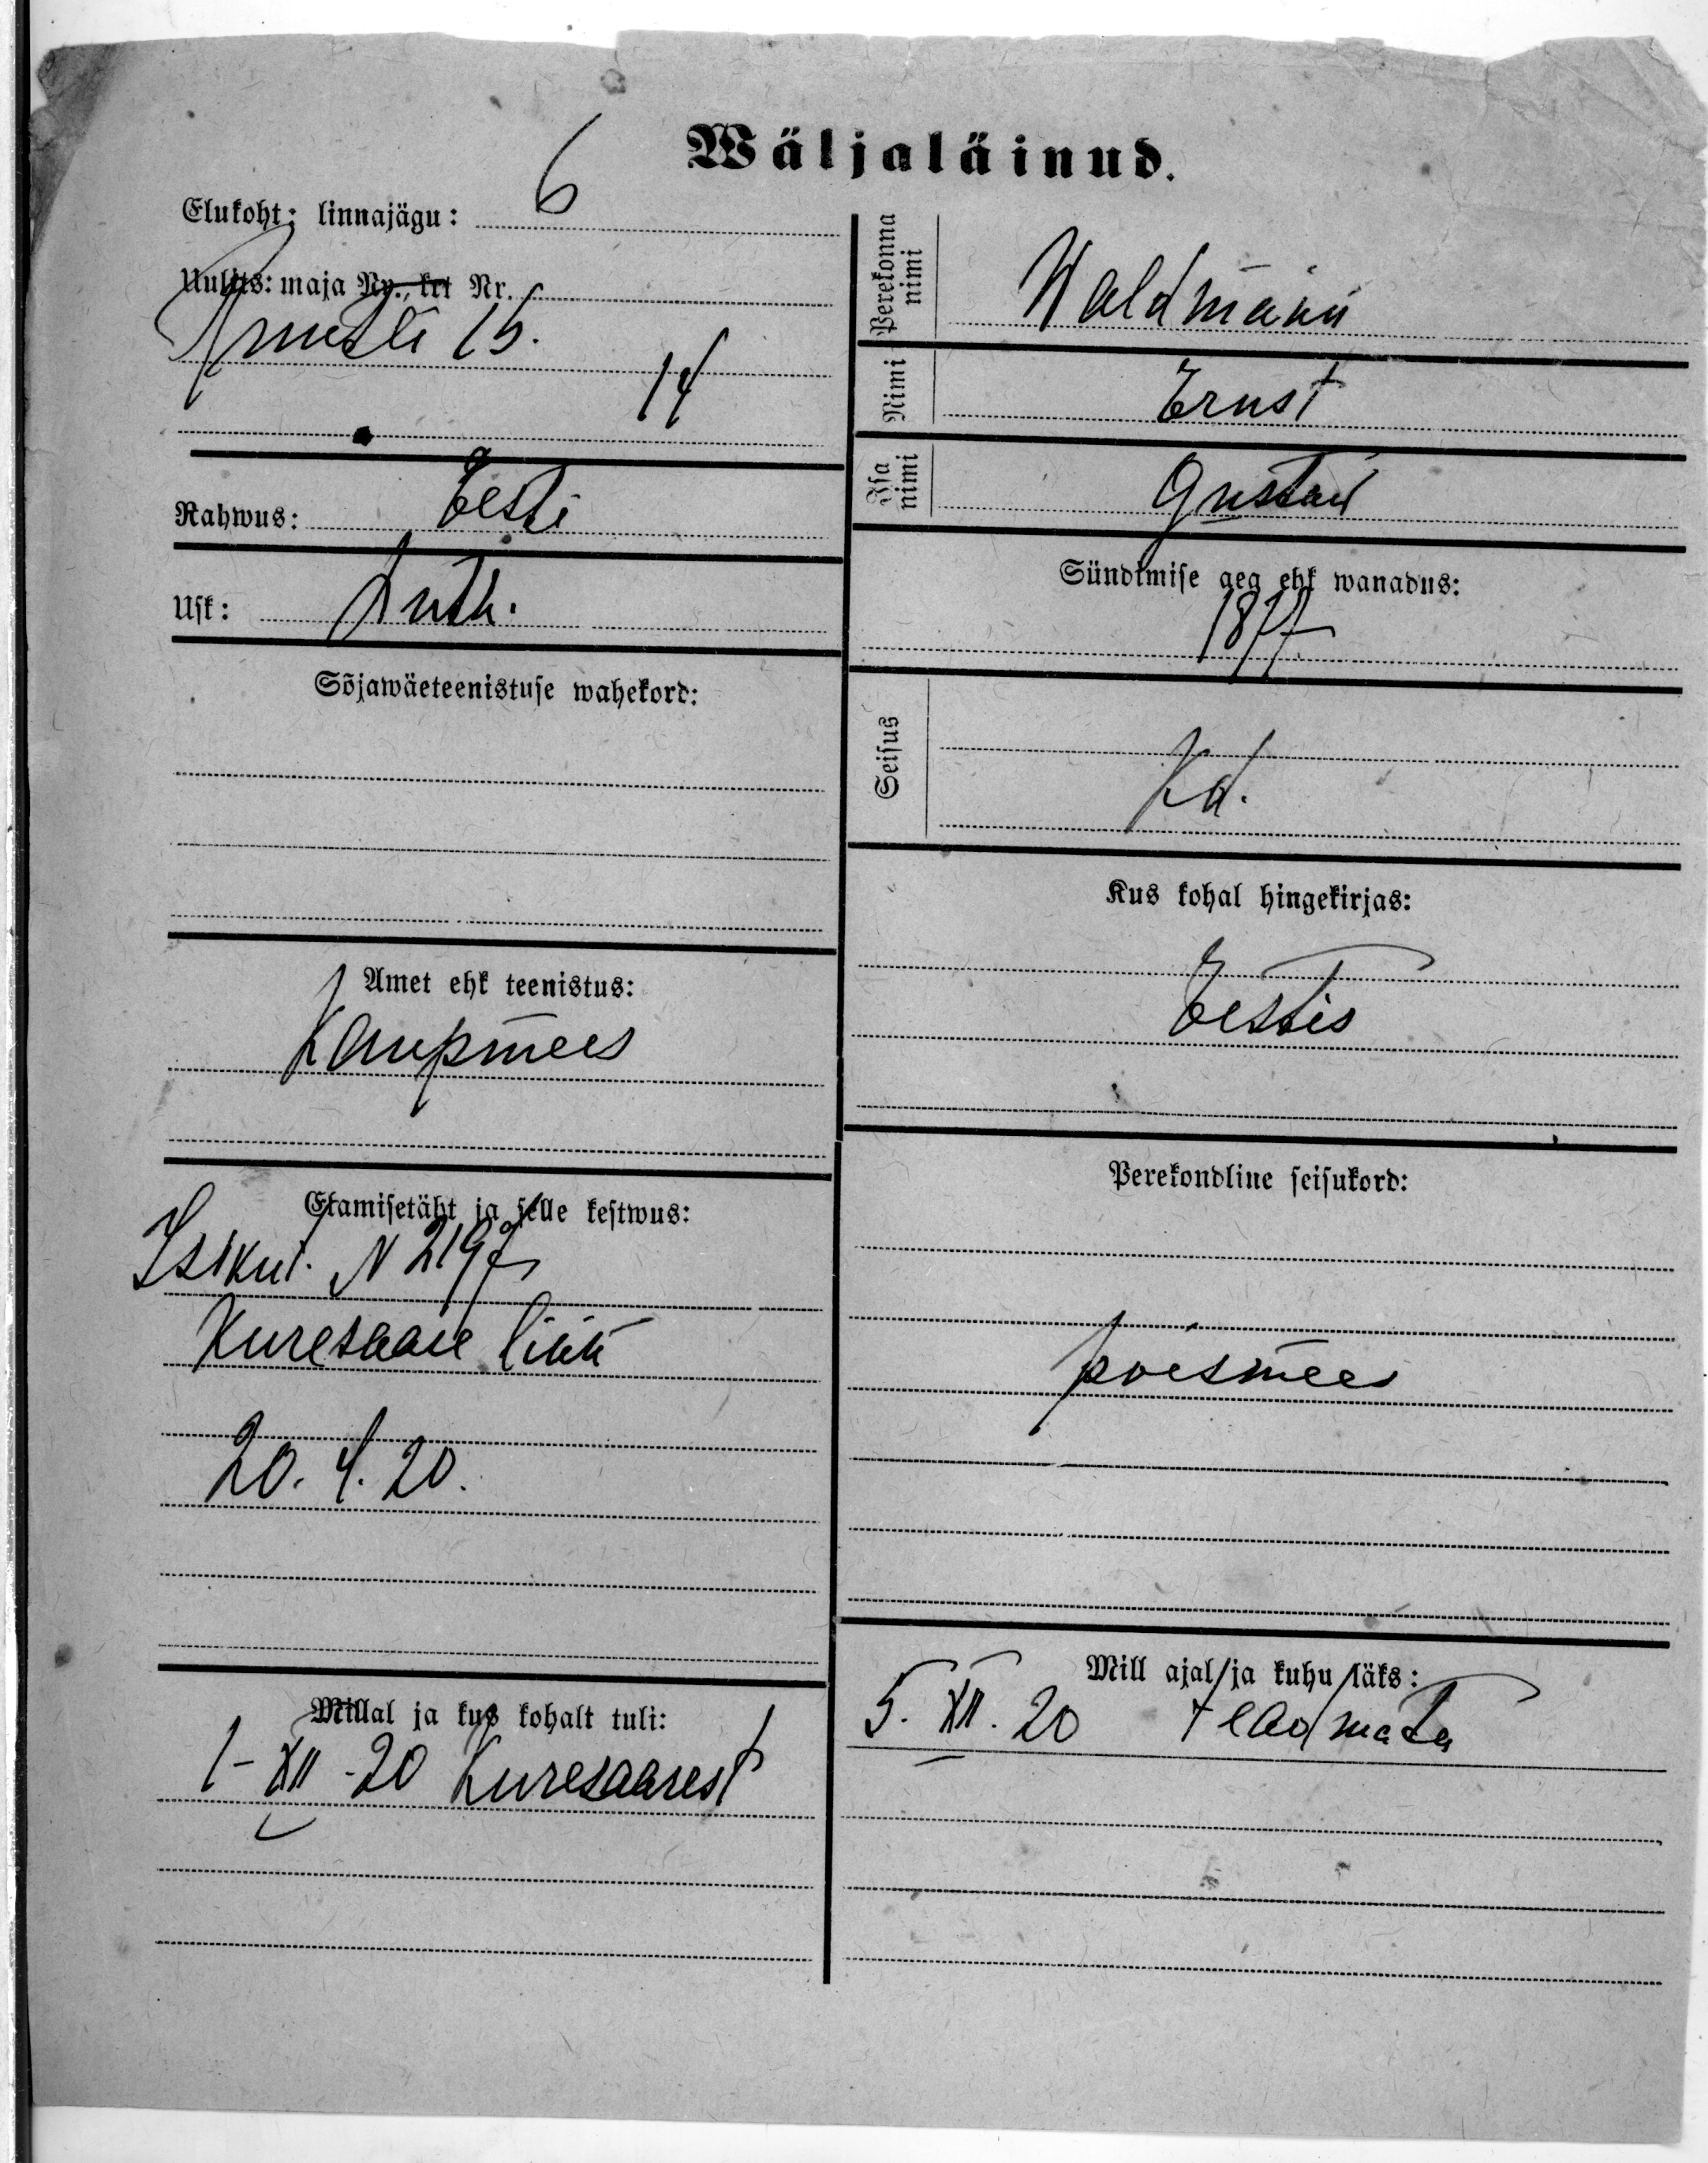 Wäljaläinud.
Elukoht: linnajägu: 6
Uulits: maja Nr., krt Nr.
15.
14
Rahwus: Eesti
Usk: Luth.
Sõjawäeteenistuse wahekord:
Amet ehk teenistus:
Kaupmees
Elamisetäht ja selle kestwus:
Isikut. N 2197
Kuresaare linn
20. 4. 20.
Millal ja kus kohalt tuli:
1 - XII - 20 Kuresaarest
Perekonna nimi Waldmann
Nimi Ernst
Isa nimi Gustav
Sündimise aeg ehk wanadus:
1877
Seisus
Kd.
Kus kohal hingekirjas:
Eestis
Perekondline seisukord:
poismees
Mill ajal ja kuhu läks:
5. XII. 20 teadmata